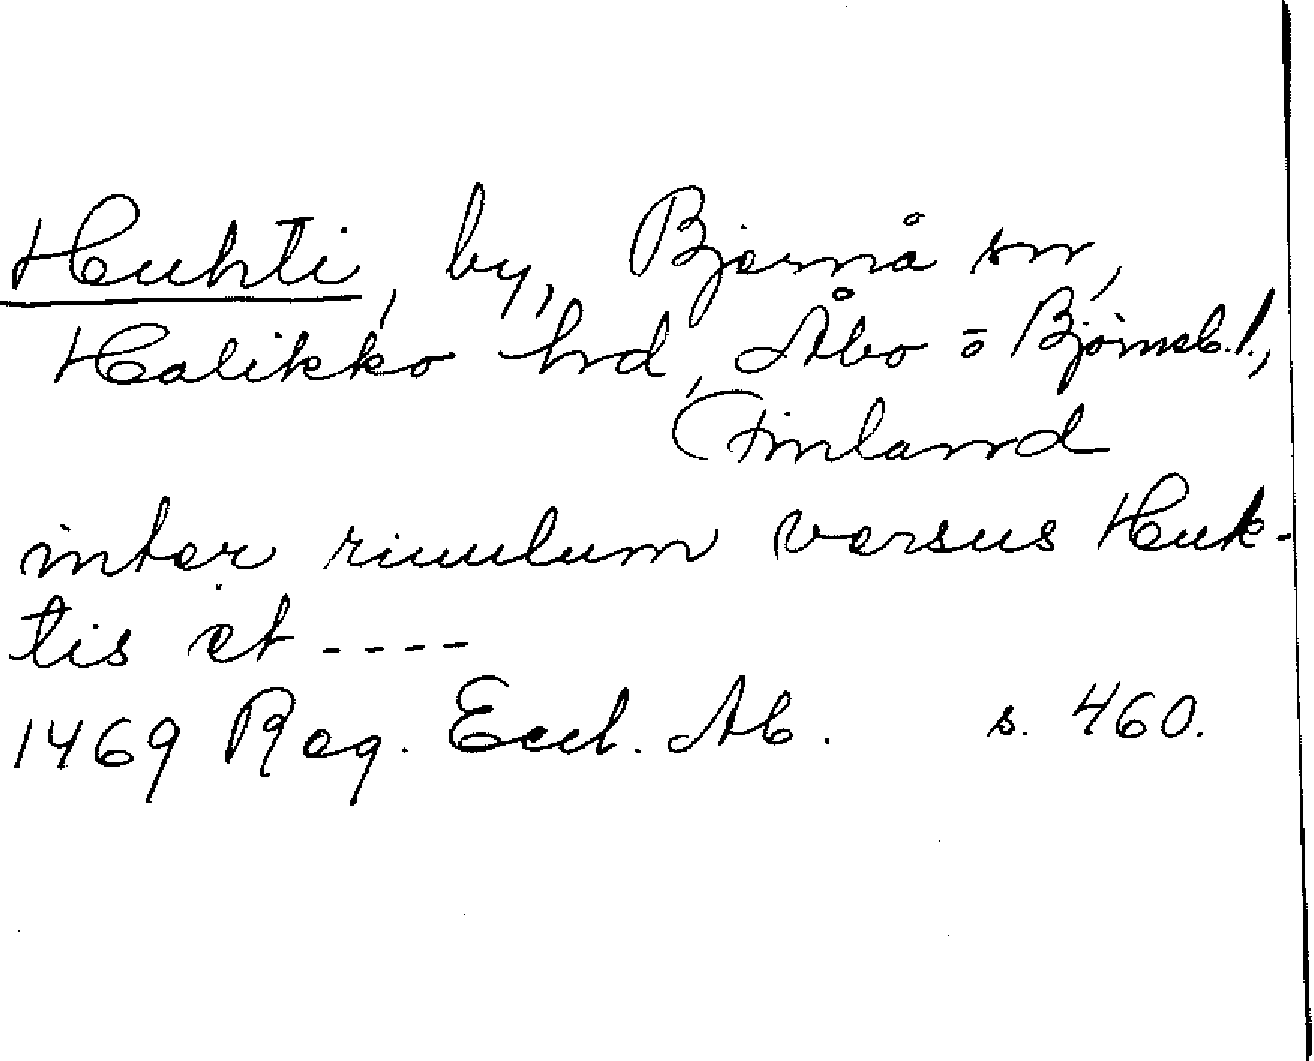 Huhti, by, Bjärnå sn,
Halikko hd, Åbo o Björneb. l.,
Finland
inter riuulum versus Huk-
tis et ----
1469 Reg. Eccl. Ab. s. 460.